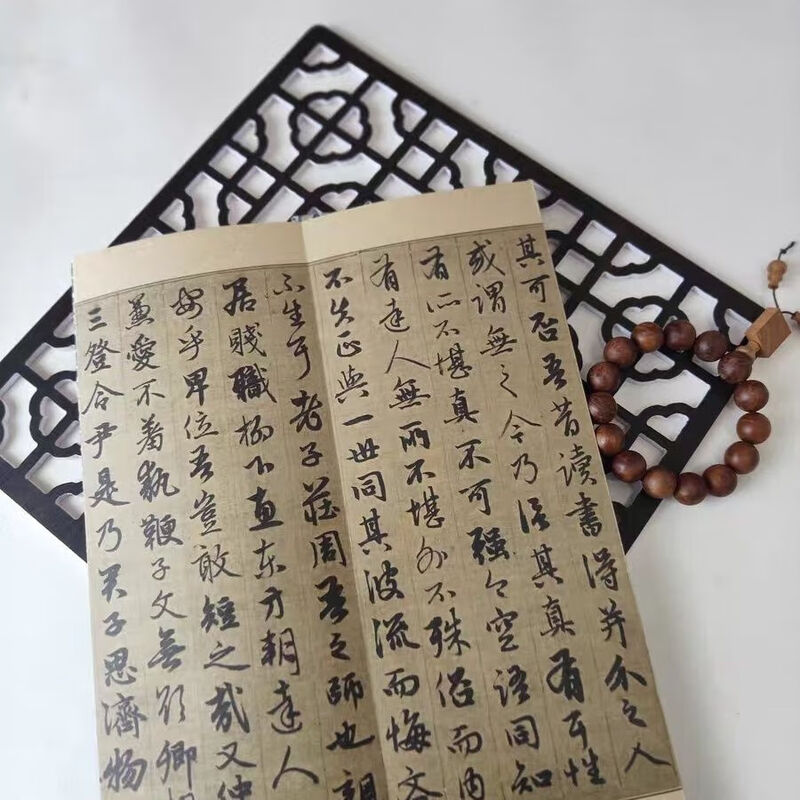 其可否吾昔讀書得并介之人
或謂無之今乃信其真有耳性
有所不堪真不可强今空語同知
有達人無所不堪外不殊俗而內
不失正與一世同其波流而悔
不生耳老子莊周吾之師也親
居賤職柳下惠東方朔達人
安乎卑位吾豈敢短之哉又仲
兼愛不羞執鞭子文無欲卿
三登令尹是乃君子思濟物